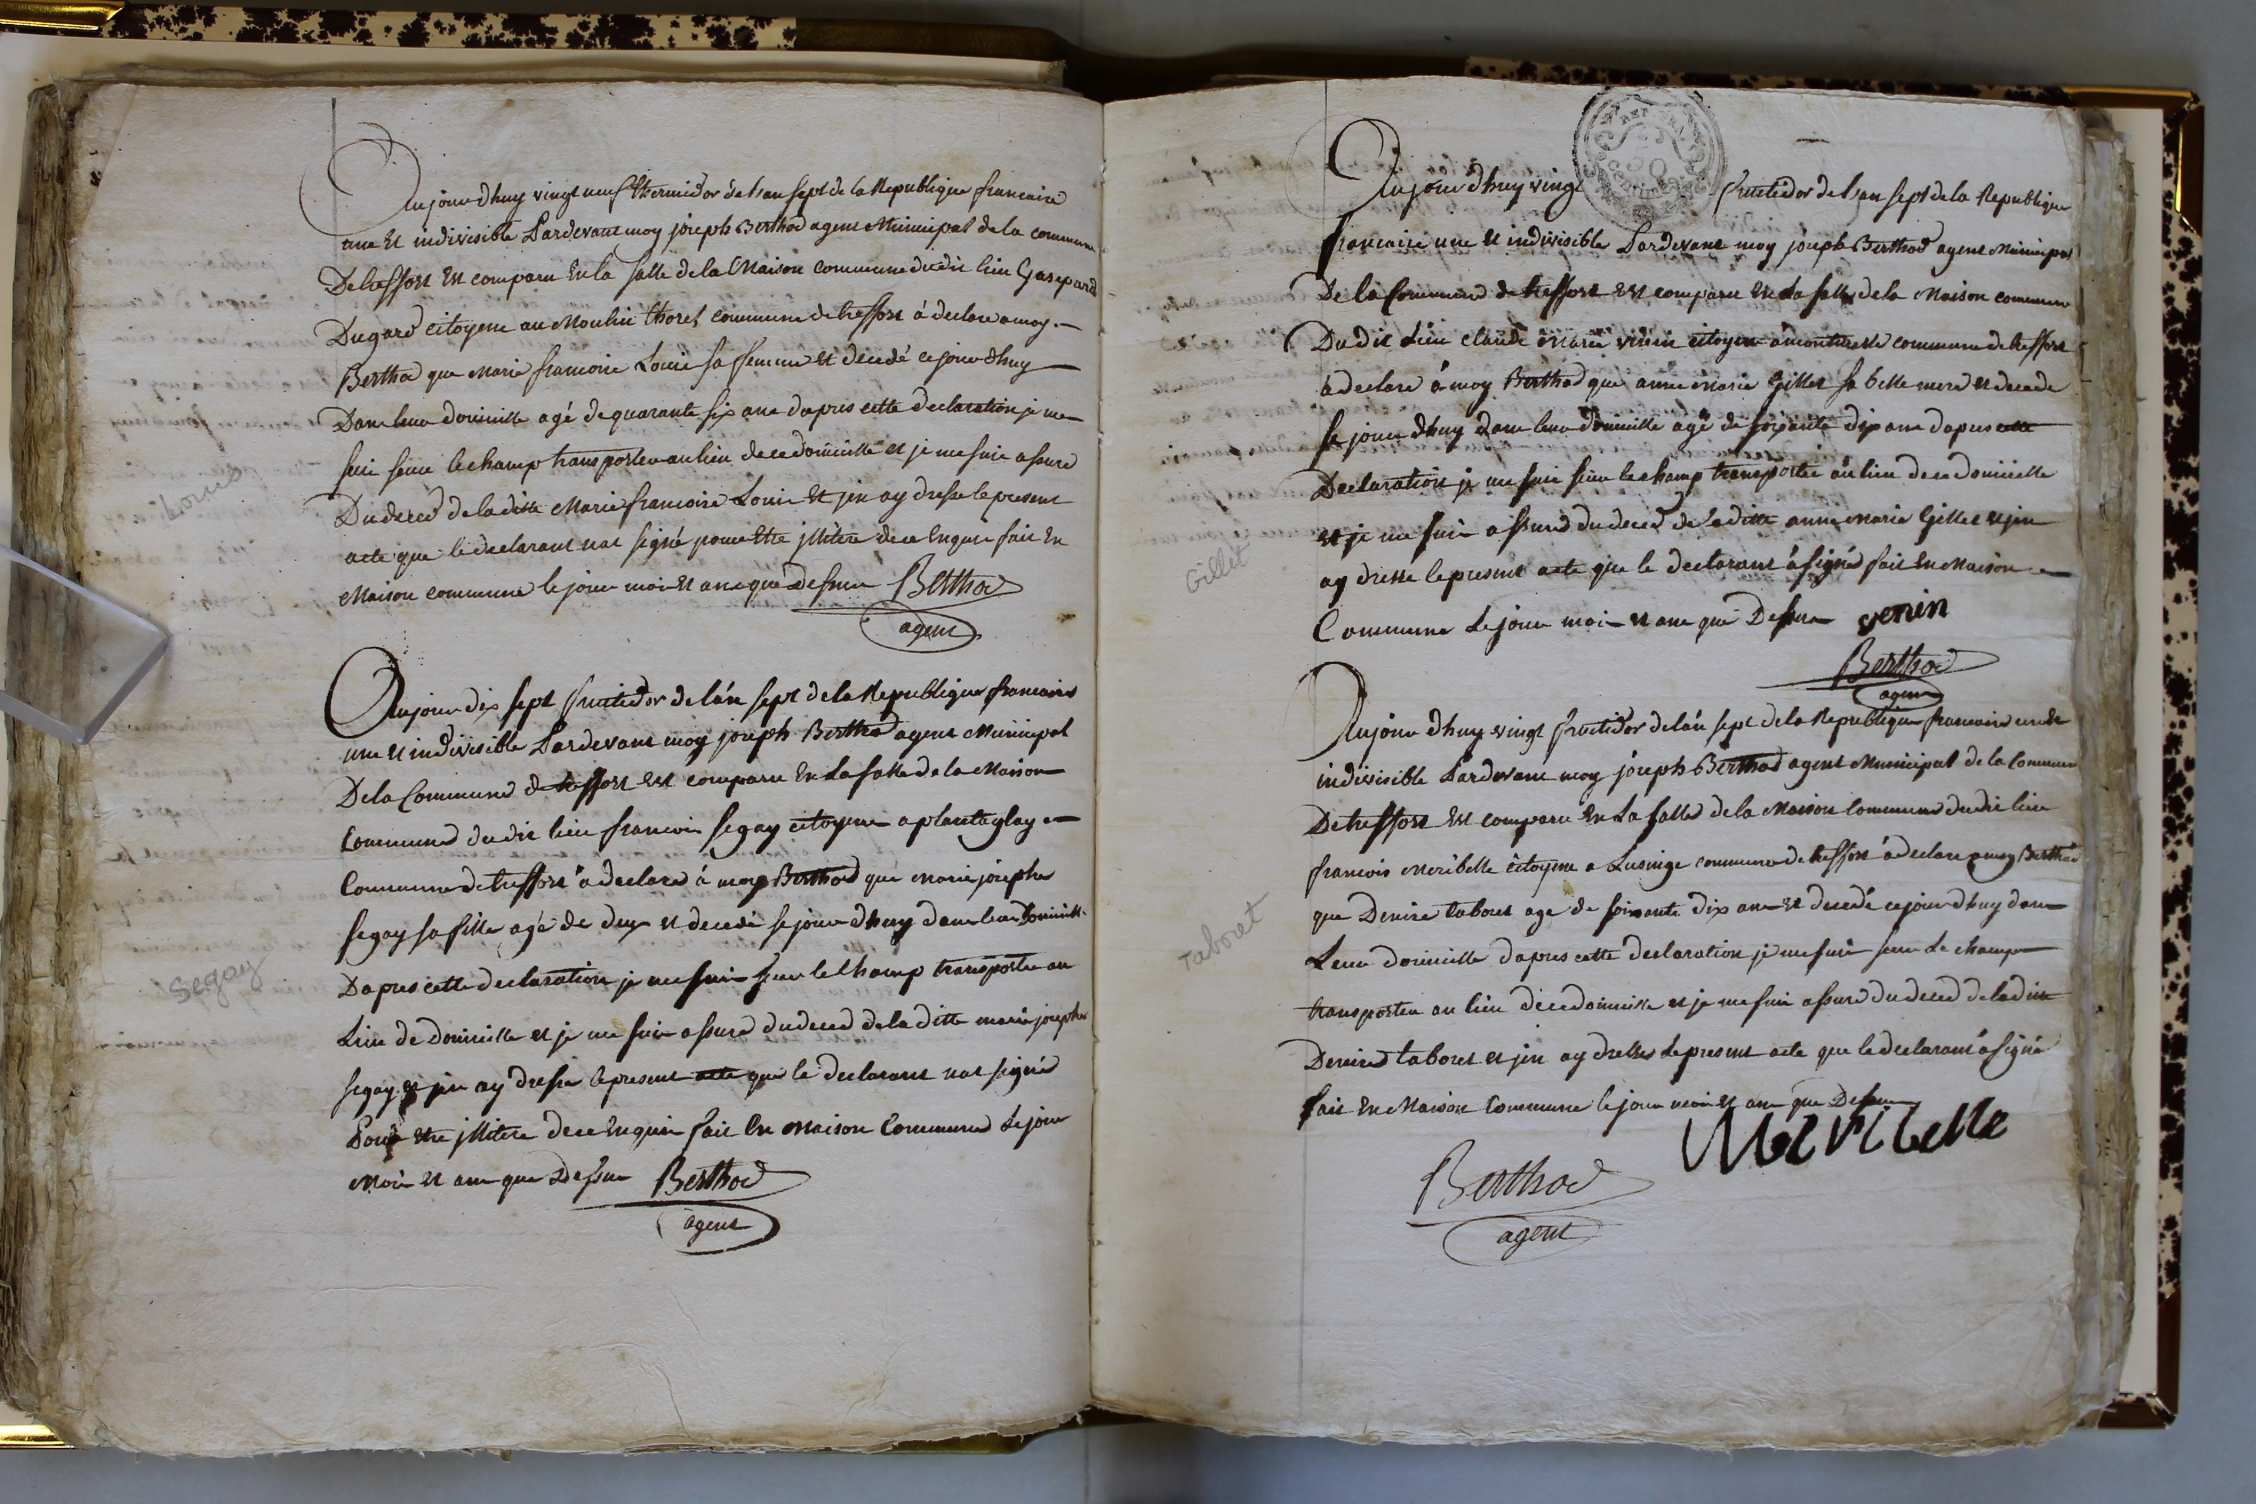 Aujourdhuy vingt neuf thermidor de lan sept de la Republique francaise
une et indivisible Pardevant moy joseph Berthod agent Municipal de la commune
De treffort est comparu en la salle de la Maison commune du dit lieu Gaspard
Dugard citoyene au Moulin thoret commune de treffort à declare a moy
Berthod que Marie francoise Louis sa femme et decedé ce jourdhuy
Dans leur domicille agé de quarante six ans dapres cette declaration je me
suis seur le champ transporter au lieu de ce domicille et je me suis assuré
Du deced de laditte Marie francoise Louis et jen ay dressé le present
acte que le declarant nat signé pour ettre illitere de ce enquis fait en
Maison commune le jour mois et ans que dessu Berthod
agent
Louis
Aujour dix sept fructidor de lán sept de la Republique francaise
une et indivisible Pardevant moy joseph Berthod agent Municipal
De la Commune de treffort est comparu en la salle de la Maison
Commune du dit lieu francois segay citoyene a plantaglay
Commune de treffort à declare à moy Berthod que marie josephe
segay sa fille agé de deux et decedé se jourdhuy dans leur Domicille
Dapres cette declaration je me suis seur le champ transporter au
Lieu de Domicille et je me suis assuré du deced de la ditte marie josephe
segay et jen ay dressé le present acte que le declarant nat signé
Pour ettre illitere de ce enquis fait en Maison Commune Le jour
Mois et ans que Dessu Berthod
agent
Segay
REP. FRA.
50
Centimes
Aujourdhuy vingt fructidor de lan sept de la Republique
francaise une et indivisible Pardevant moy joseph Berthod agent Municipal
De la Commune de treffort est comparu en La salle de la Maison commune
Du dit Lieu claude Marie venin citoyen à montmerle commune de treffort
à declare à moy Berthod que anne Marie Gillet sa belle mere et decede
se jourdhuy dans leur domicille agé de soixante dix ans dapres cette
Declaration je me suis seur le champ transporter au lieu de ce domicille
et je me suis assuré du deced de laditte anne Marie Gillet et jen
ay dresse le present acte que le declarant à signé fait en Maison
Commune Le jour mois et ans que Dessu venin
Berthod
agent
Gillet
Aujourdhuy vingt fructidor de lán sept de la Republique francaise une et
indivisible Pardevant moy joseph Berthod agent Municipal de la Commune
De treffort est comparu en La salle de la Maison Commune du dit lieu
francois Meribelle citoyene a Lusinge commune de treffort à declare a moy Berthod
que Denise taboret agé de soixante dix ans et decedé ce jourdhuy dans
Leur domicille dapres cette declaration je me suis seur Le champ
transporter au lieu de ce domicille et je me suis assuré du deced de la ditte
Denise taboret et jen ay dressé Le present acte que le declarant à signé
fait en Maison Commune le jour mois et ans que Dessu
Meribelle
Berthod
agent
Taboret